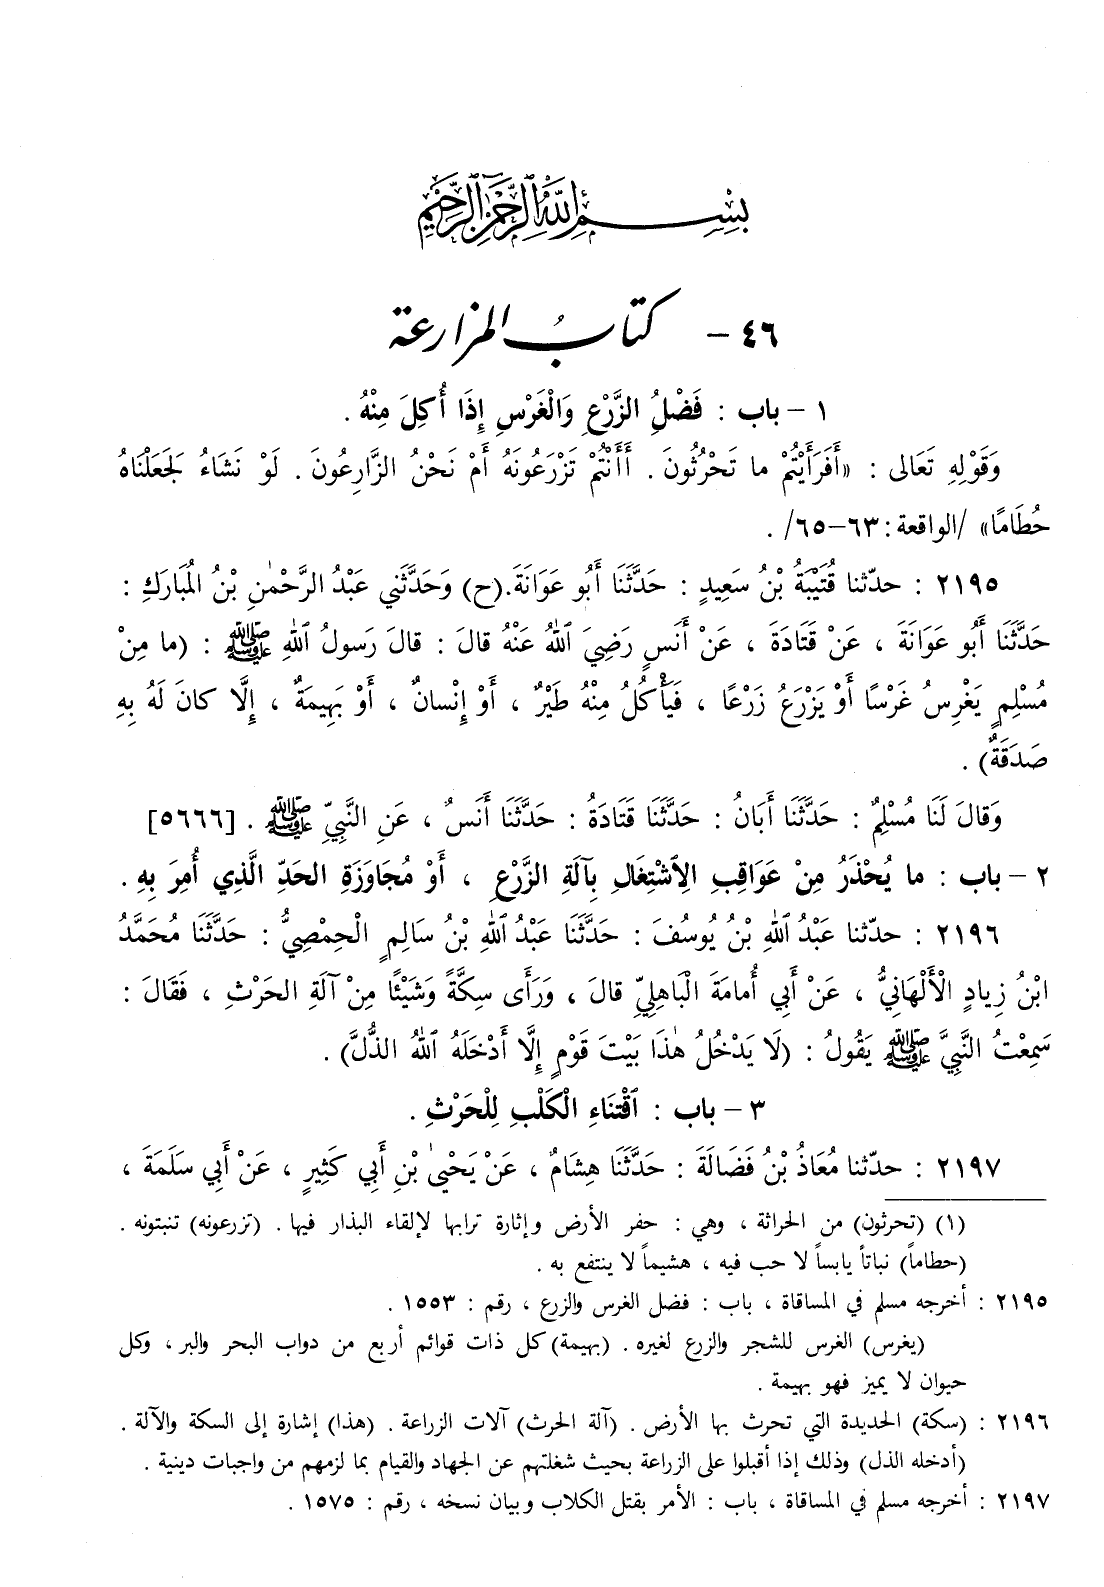 بِسْمِ اللَّهِ الرَّحْمَنِ الرَّحِيمِ
٤٦ - كتابُ المزارعة
١ - باب : فَضْلُ الزَّرْعِ وَالْغَرْسِ إِذَا أُكِلَ مِنْهُ .
وَقَوْلِهِ تَعَالى : «أَفَرَأَيْتُمْ ما تَحْرُثُونَ . أَأَنْتُمْ تَزْرَعُونَهُ أَمْ نَحْنُ الزَّارِعُونَ . لَوْ نَشَاءُ لَجَعَلْنَاهُ
حُطَامًا» /الواقعة: ٦٣-٦٥/ .
٢١٩٥ : حدّثنا قُتَيْبَةُ بْنُ سَعِيدٍ : حَدَّثَنَا أَبُو عَوَانَةَ.(ح) وَحَدَّثَنِي عَبْدُ الرَّحْمٰنِ بْنُ الْمُبَارَكِ :
حَدَّثَنَا أَبُو عَوَانَةَ ، عَنْ قَتَادَةَ ، عَنْ أَنَسٍ رَضِيَ اللهُ عَنْهُ قالَ : قالَ رَسولُ اللهِ ﷺ : (ما مِنْ
مُسْلِمٍ يَغْرِسُ غَرْسًا أَوْ يَزْرَعُ زَرْعًا ، فَيَأْكُلُ مِنْهُ طَيْرٌ ، أَوْ إِنْسانٌ ، أَوْ بَهِيمَةٌ ، إِلَّا كانَ لَهُ بِهِ
صَدَقَةٌ) .
وَقالَ لَنَا مُسْلِمٌ : حَدَّثَنَا أَبَانُ : حَدَّثَنَا قَتَادَةُ : حَدَّثَنَا أَنَسٌ ، عَنِ النَّبِيِّ ﷺ . [٥٦٦٦]
٢ - باب : ما يُحْذَرُ مِنْ عَوَاقِبِ الِاشْتِغَالِ بِآلَةِ الزَّرْعِ ، أَوْ مُجَاوَزَةِ الحَدِّ الَّذِي أُمِرَ بِهِ .
٢١٩٦ : حدّثنا عَبْدُ اللهِ بْنُ يُوسُفَ : حَدَّثَنَا عَبْدُ اللهِ بْنُ سَالِمٍ الْحِمْصِيُّ : حَدَّثَنَا مُحَمَّدُ
ابْنُ زِيادٍ الْأَلْهَانِيُّ ، عَنْ أَبِي أُمامَةَ الْبَاهِلِيِّ قالَ ، وَرَأَى سِكَّةً وَشَيْئًا مِنْ آلَةِ الحَرْثِ ، فَقَالَ :
سَمِعْتُ النَّبِيَّ ﷺ يَقُولُ : (لَا يَدْخُلُ هٰذَا بَيْتَ قَوْمٍ إِلَّا أَدْخَلَهُ اللهُ الذُّلَّ) .
٣ - باب : اقْتِنَاءِ الْكَلْبِ لِلْحَرْثِ .
٢١٩٧ : حدّثنا مُعَاذُ بْنُ فَضَالَةَ : حَدَّثَنَا هِشَامٌ ، عَنْ يَحْيىٰ بْنِ أَبِي كَثِيرٍ ، عَنْ أَبِي سَلَمَةَ ،
(١) (تحرثون) من الحراثة ، وهي : حفر الأرض وإثارة ترابها لإلقاء البذار فيها . (تزرعونه) تنبتونه .
(حطاماً) نباتاً يابساً لا حب فيه ، هشيماً لا ينتفع به .
٢١٩٥ : أخرجه مسلم في المساقاة ، باب : فضل الغرس والزرع ، رقم : ١٥٥٣ .
(يغرس) الغرس للشجر والزرع لغيره . (بهيمة) كل ذات قوائم أربع من دواب البحر والبر ، وكل
حيوان لا يميز فهو بهيمة .
٢١٩٦ : (سكة) الحديدة التي تحرث بها الأرض . (آلة الحرث) آلات الزراعة . (هذا) إشارة إلى السكة والآلة .
(أدخله الذل) وذلك إذا أقبلوا على الزراعة بحيث شغلتهم عن الجهاد والقيام بما لزمهم من واجبات دينية .
٢١٩٧ : أخرجه مسلم في المساقاة ، باب : الأمر بقتل الكلاب وبيان نسخه ، رقم : ١٥٧٥ .